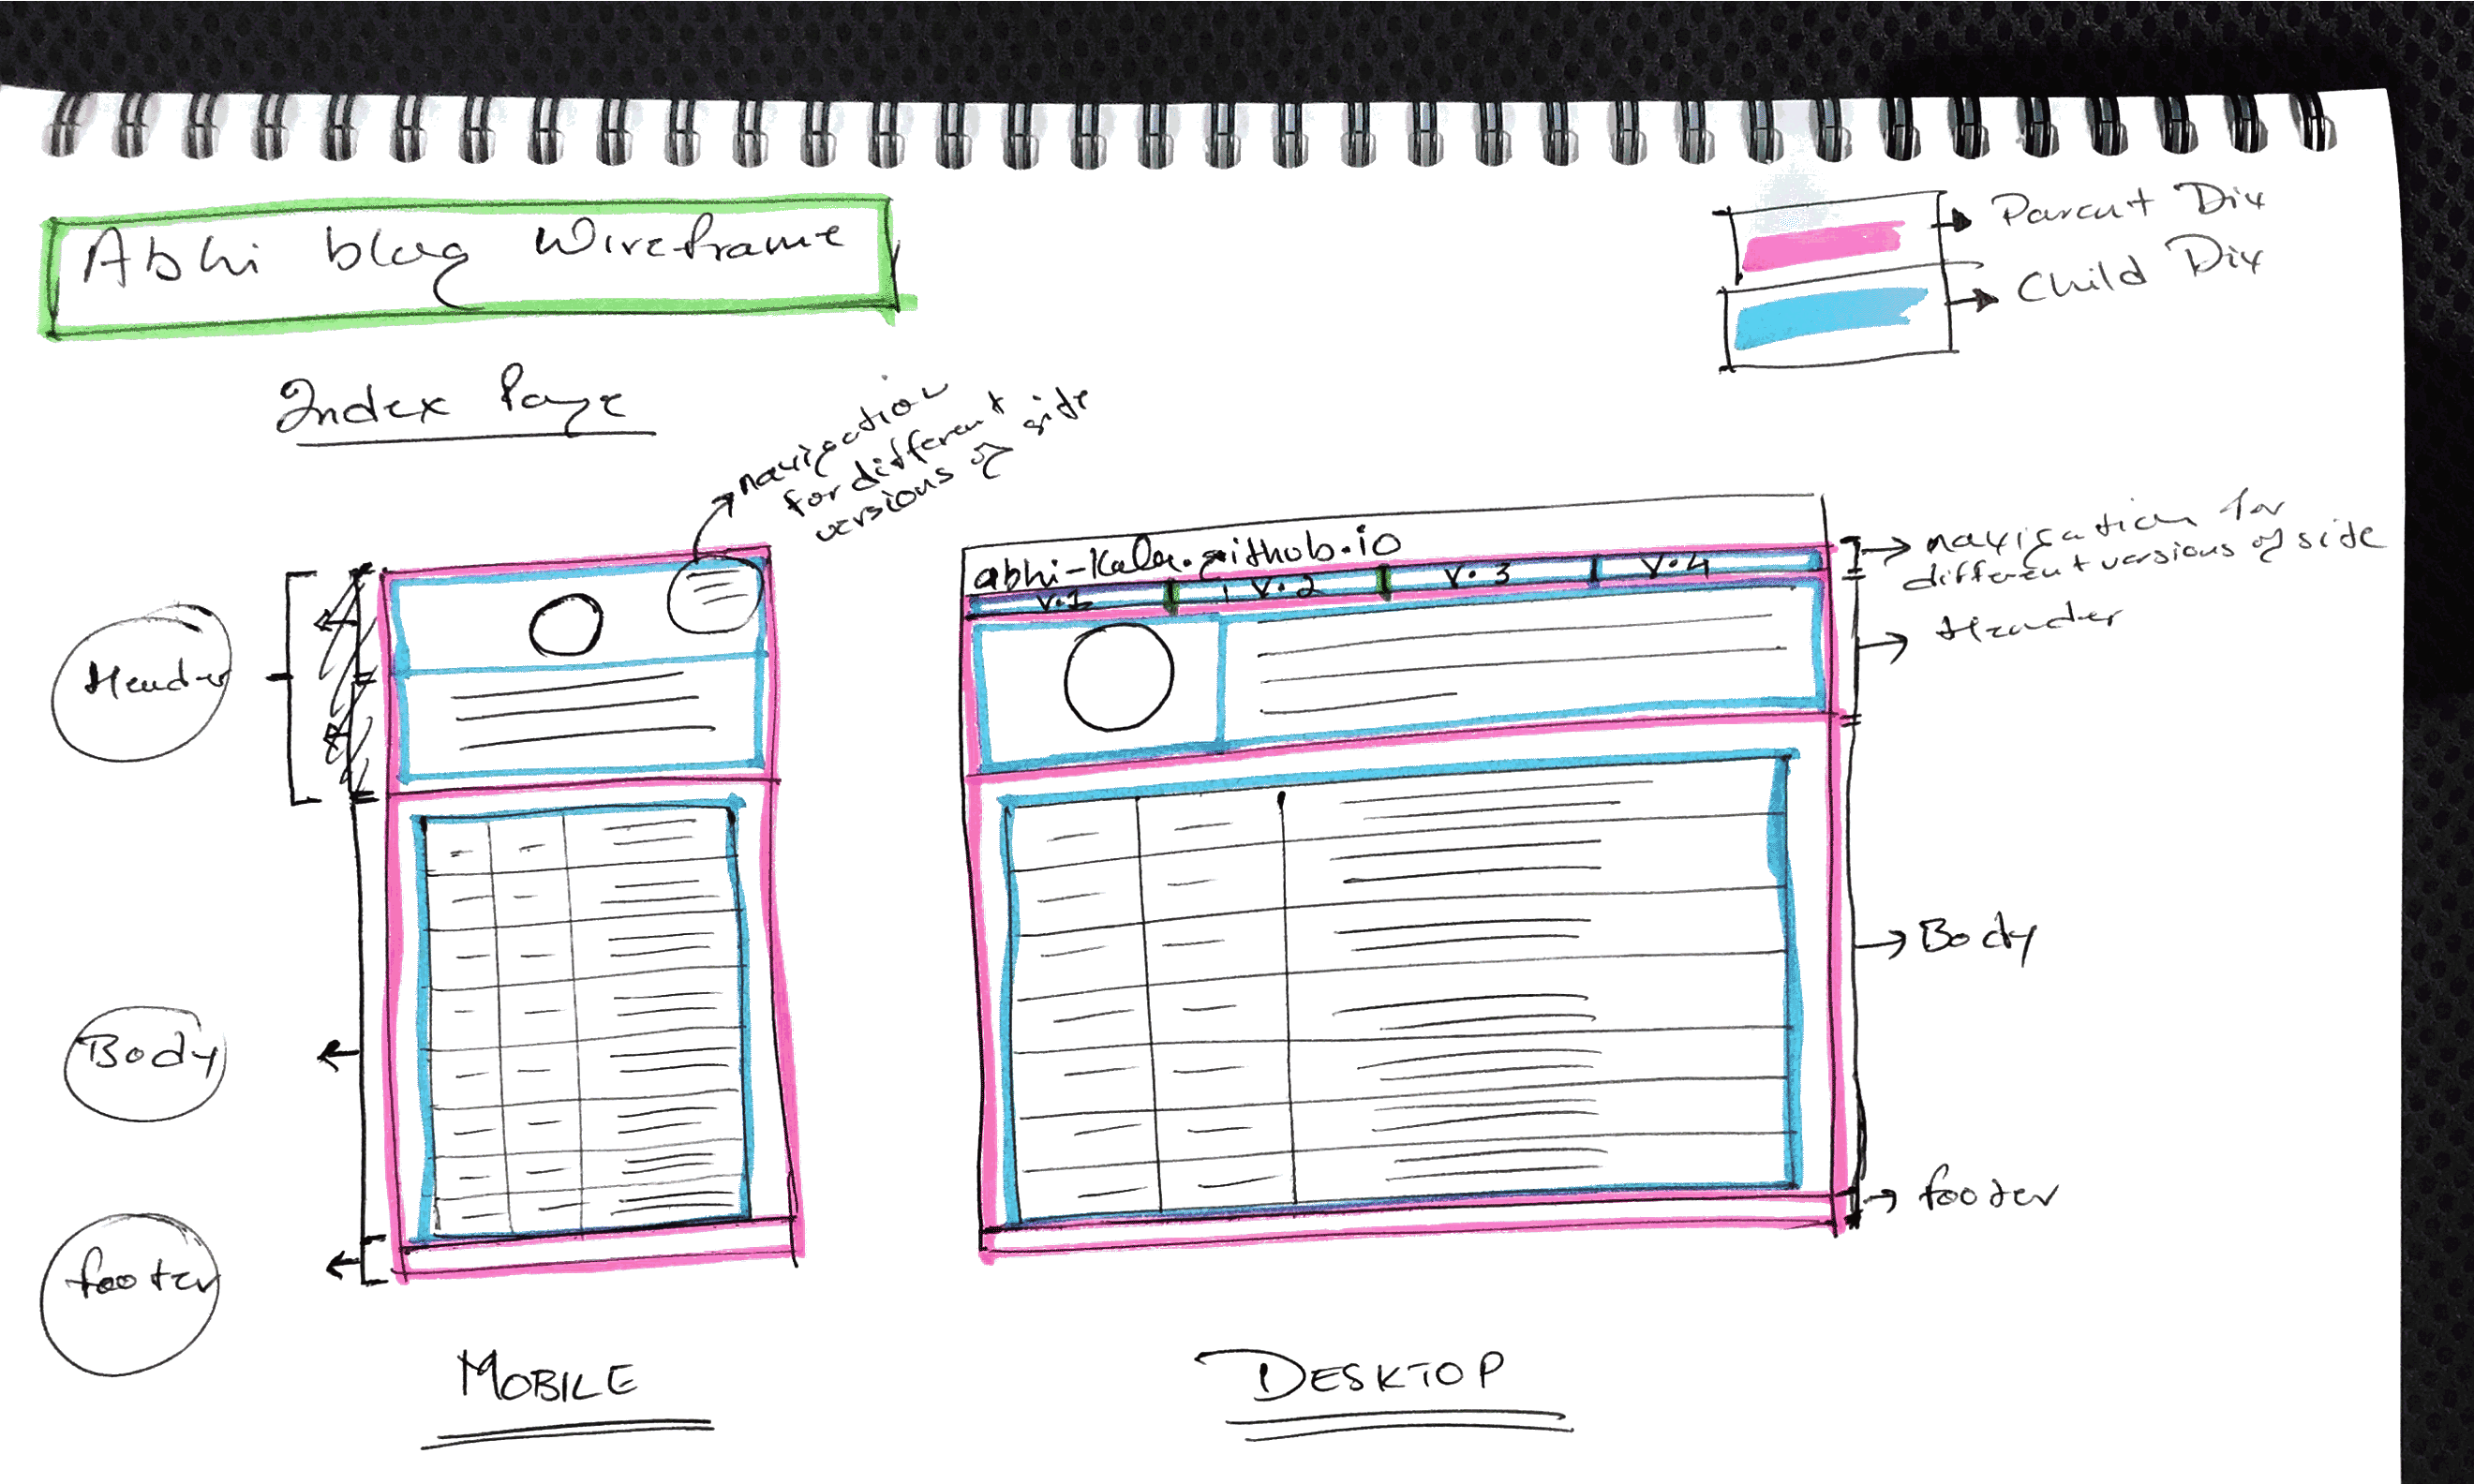 Abhi blog Wireframe
Parent Div
Child Div
Index Page
navigation
for different
versions of side
abhi-kala.github.io
v.1 v.2 v.3 v.4
navigation for
different versions of side
Header
Header
Body
Body
footer
footer
MOBILE
DESKTOP